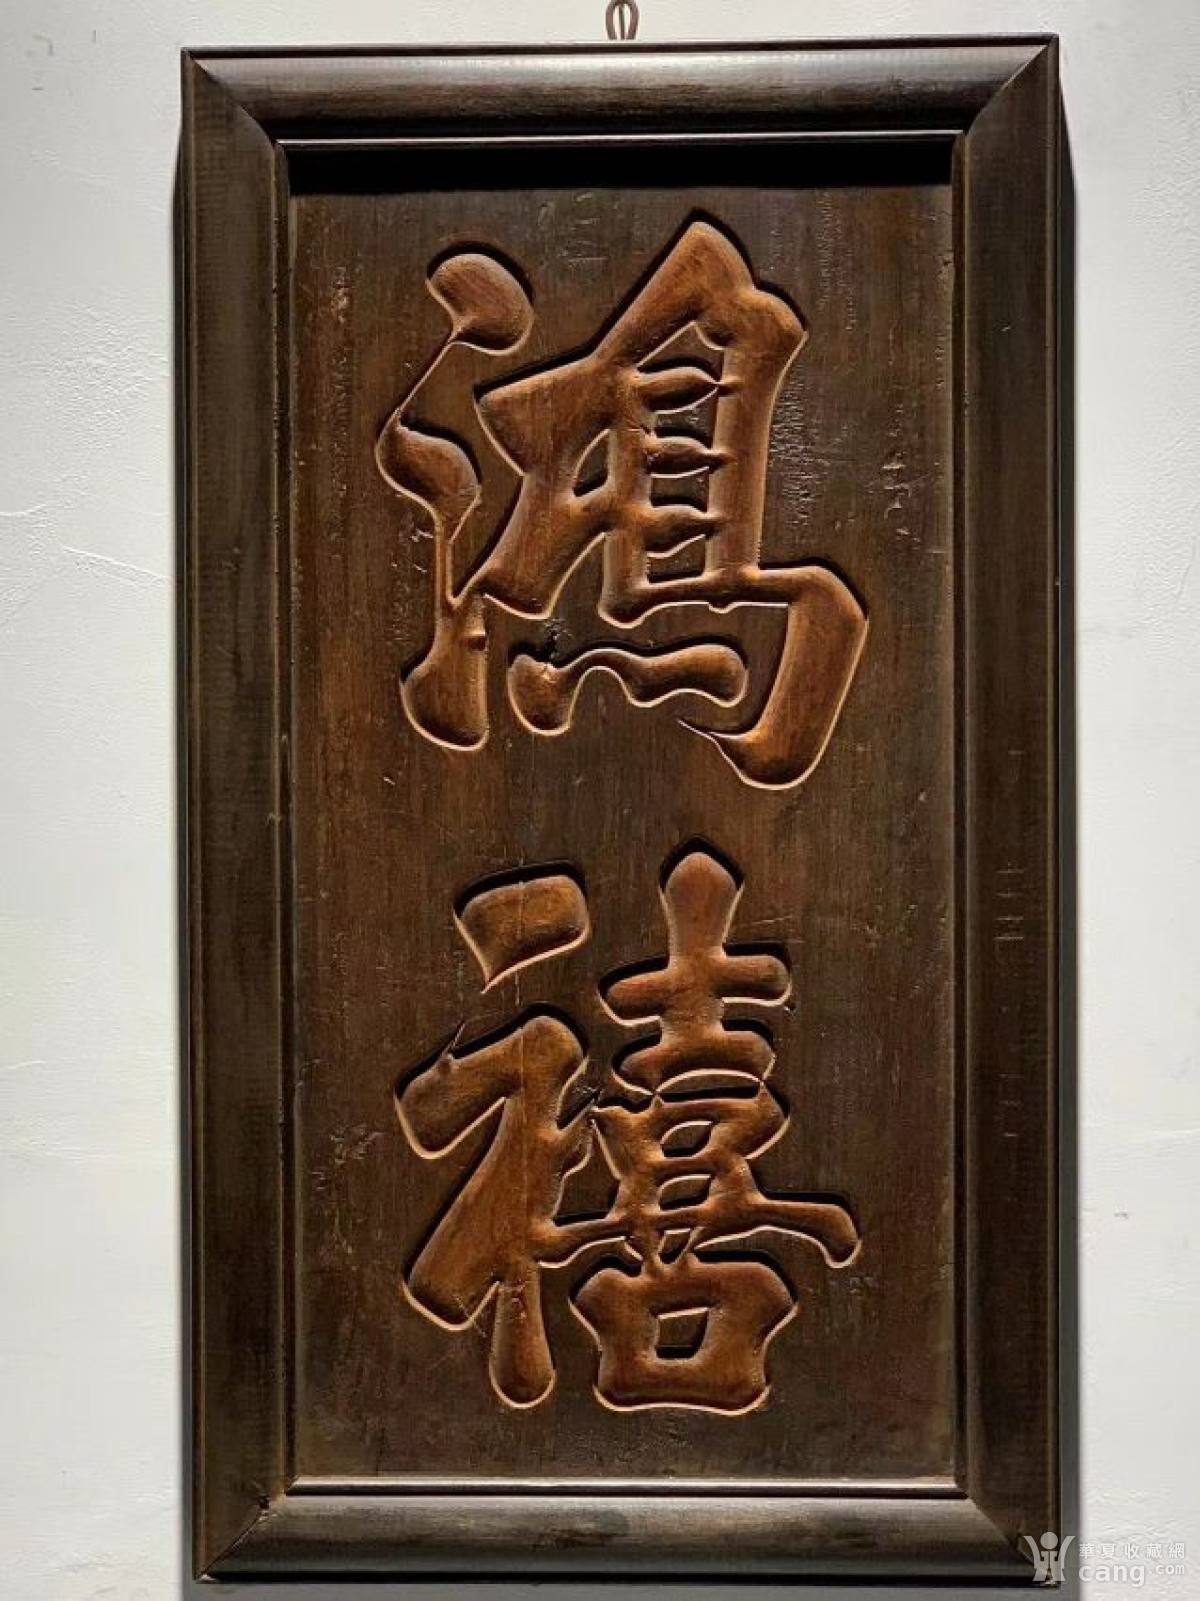 鴻
禧
華夏收藏網
cang.com